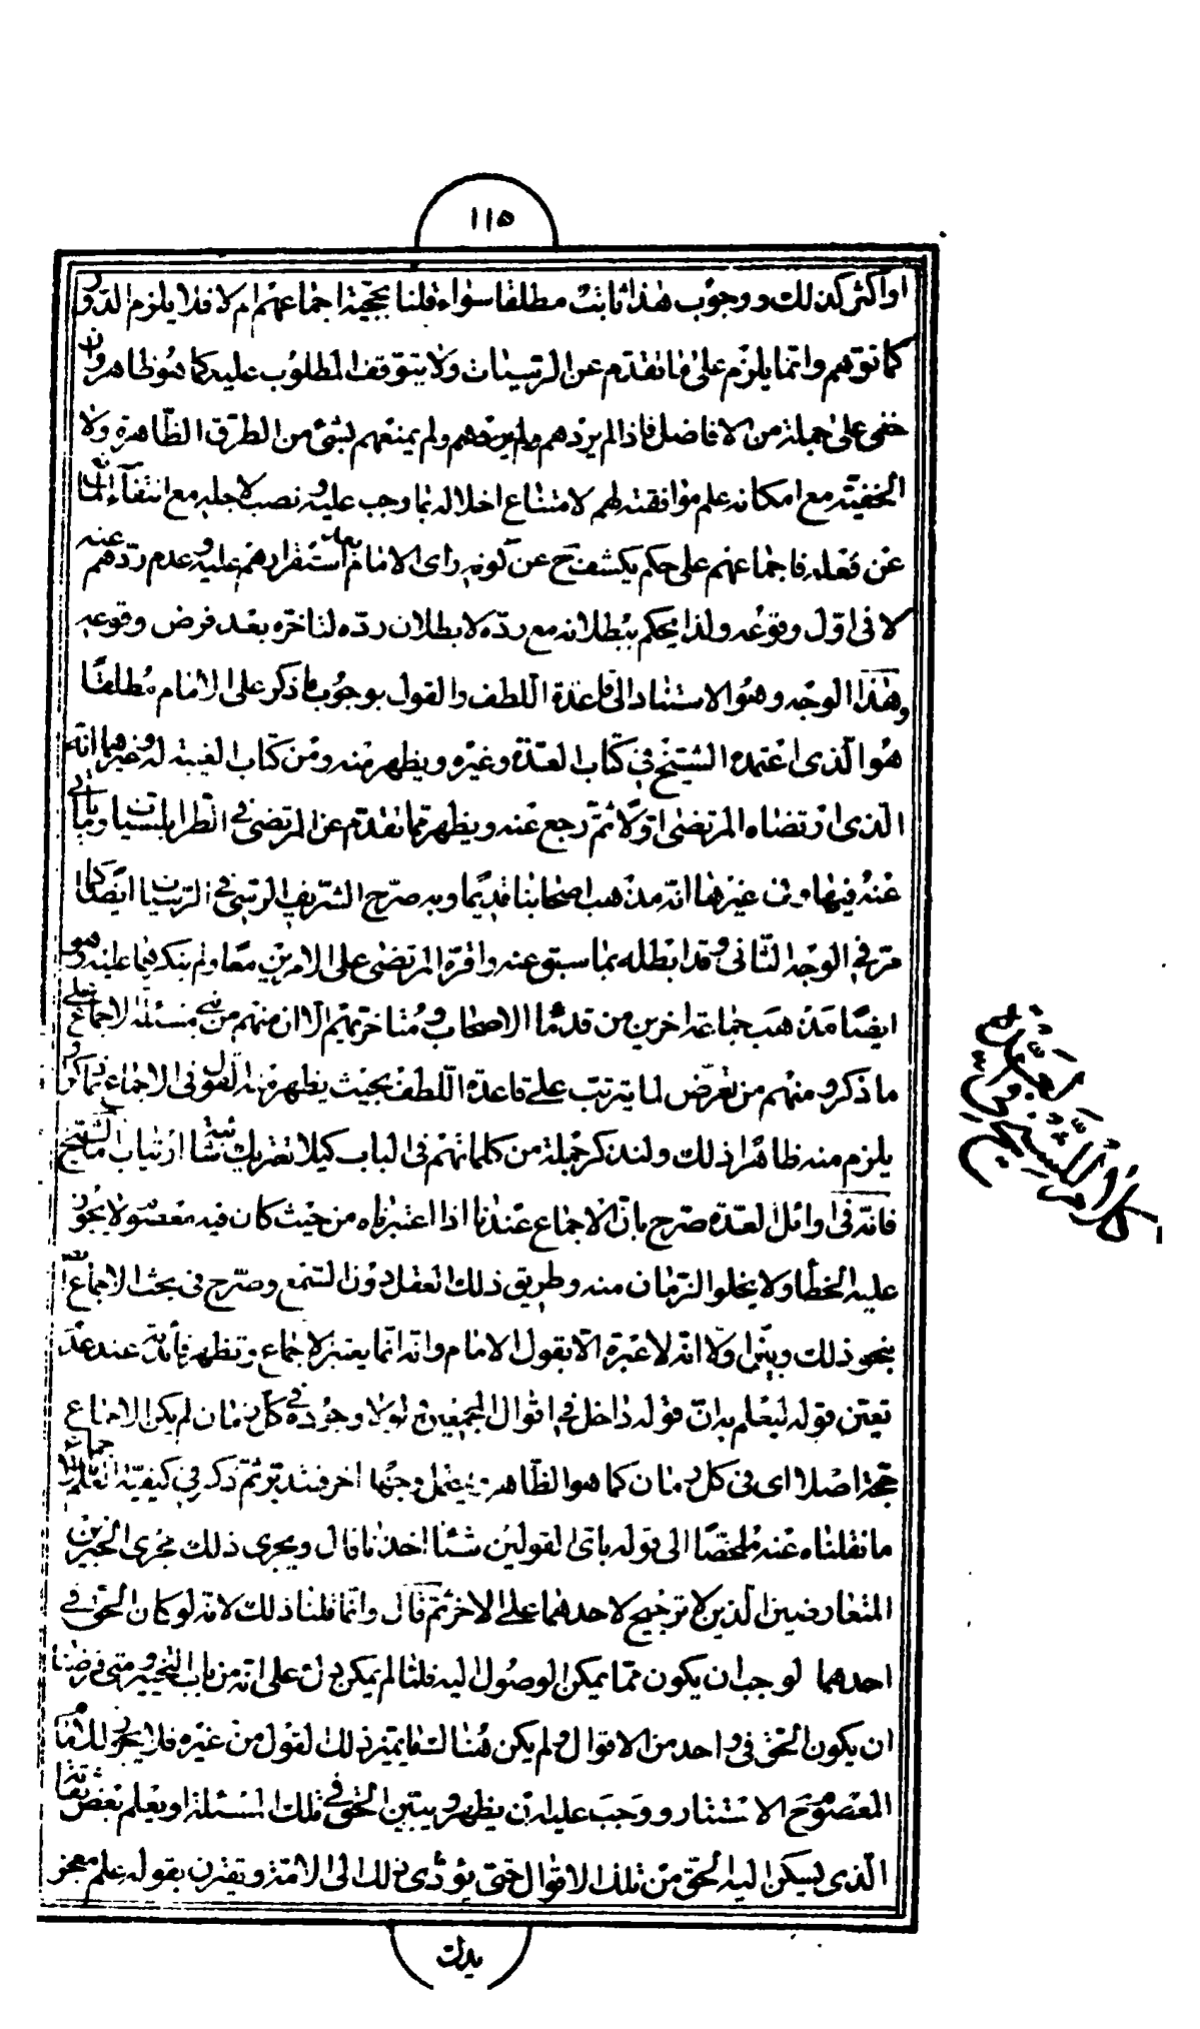 ١١٥
او اكثر كذلك ووجوب هذا ثابت مطلقا سواء قلنا بحجية اجماعهم ام لا فلا يلزم الدور
كما توهم وانما يلزم على ما تقدم عن الرسيات ولا يتوقف المطلوب عليه كما هو ظاهر وان
خفى على جملة من الافاضل فاذا لم يردهم ولم يردهم ولم يمنعهم بشئ من الطرق الظاهرة ولا
الخفية مع امكانه علم موافقته لهم لامتناع اخلاله بما وجب عليه ونصب لاجله مع انتفاء المانع
عن فعله فاجماعهم على حكم يكشف ح عن كونه راى الامام بعد استقرارهم عليه وعدم ردهم عنه
لا فى اول وقوعه ولذا يحكم ببطلانه مع رده لا بطلان رده لتاخره بعد فرض وقوعه
وهذا الوجه وهو الاستناد الى قاعدة اللطف والقول بوجوب ما ذكر على الامام مطلقا
هو الذى اعتمده الشيخ فى كتاب العدة وغيره ويظهر منه ومن كتاب الغيبة له وغيرهما انه
الذى ارتضاه المرتضى اولا ثم رجع عنه ويظهر مما تقدم عن المرتضى فى الطرابلسيات وياتى
عنه فيها وفى غيرها انه مذهب اصحابنا قديما وبه صرح الشريف الرسى فى الرسيات ايضا كما
مر فى الوجه الثانى وقد ابطله بما سبق عنه واقره المرتضى على الامرين معا ولم ينكر فيما عليه وهو
ايضا مذهب جماعة اخرين من قدماء الاصحاب ومتاخريهم الا ان منهم من بنى مسئلة الاجماع على
ما ذكر ومنهم من تعرض لما يترتب على قاعدة اللطف بحيث يظهر منه القول فى الاجماع بما ذكر او
يلزم منه ظاهرا ذلك ولنذكر جملة من كلماتهم فى الباب كيلا يعتريك شائبة ارتياب اما الشيخ
فانه فى اوائل العدة صرح بان الاجماع عندنا اذا اعتبرناه من حيث كان فيه معصوم لا يجوز
عليه الخطأ ولا يخلو الزمان منه وطريق ذلك العقل دون السمع وصرح فى بحث الاجماع
بنحو ذلك وبين اولا انه لا عبرة الا بقول الامام وانه انما يعتبر الاجماع وتظهر فائدته عند عدم
تعين قوله ليعلم به ان قوله داخل فى اقوال المجمعين لولا وجوده فى كل زمان لم يكن الاجماع
حجة اصلا اى فى كل زمان كما هو الظاهر ويحتمل وجها اخر فتدبر ثم ذكر فى كيفية العلم
ما نقلناه عنه ملخصا الى قوله باى القولين شئنا اخذنا قال ويجرى ذلك مجرى الخبرين
المتعارضين الذين لا ترجيح لاحدهما على الاخر ثم قال وانما قلنا ذلك لانه لو كان الحق فى
احدهما لوجب ان يكون مما يمكن الوصول اليه فلما لم يمكن دل على انه من باب التخيير ومتى فرضنا
ان يكون الحق فى واحد من الاقوال ولم يكن هناك ما يميز ذلك القول من غيره فلا يجوز للامام
المعصوم ح الاستتار ووجب عليه ان يظهر ويبين الحق فى تلك المسئلة او يعلم بعض ثقاته
الذى يسكن اليه الحق من تلك الاقوال حتى يؤدى ذلك الى الامة ويقترن بقوله علم معجز
كلام الشيخ فى العدة
يدل